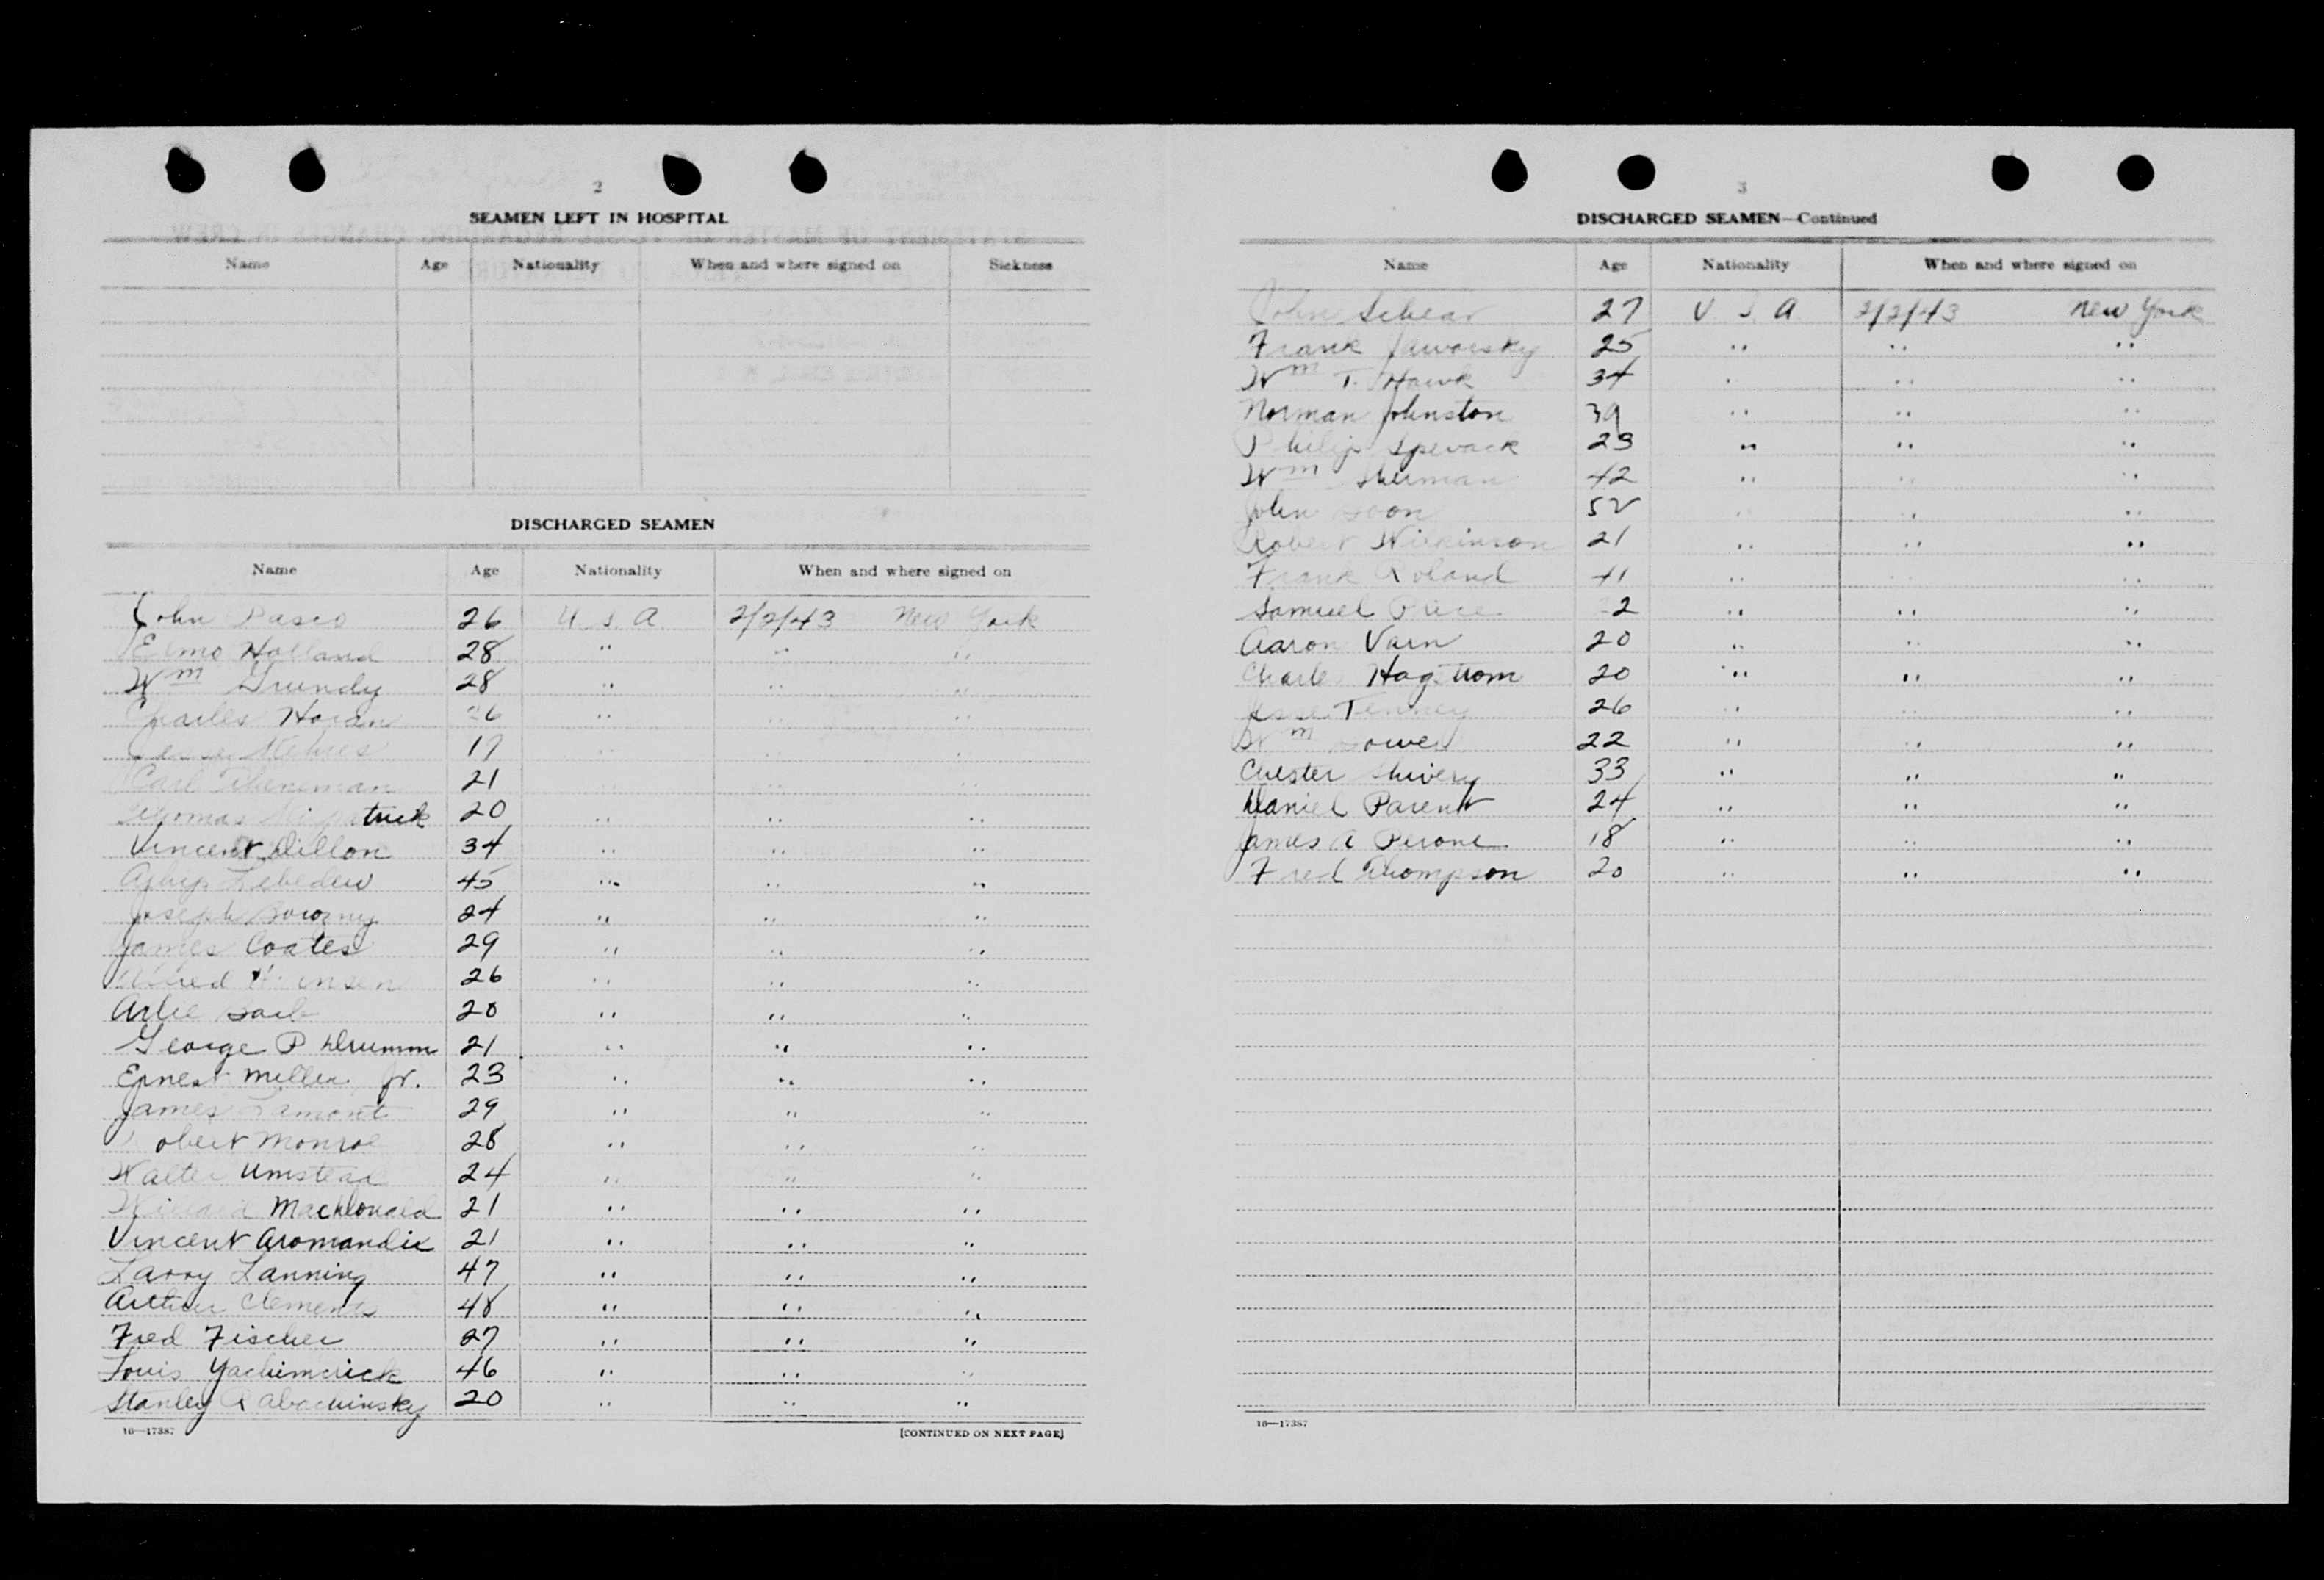 2
SEAMEN LEFT IN HOSPITAL
Name Age Nationality When and where signed on Sickness
DISCHARGED SEAMEN
Name Age Nationality When and where signed on
John Pasco 26 U.S.A. 2/2/43 New York
Elmo Holland 28 " " "
Wm Grundy 28 " " "
Charles Horan 6 " " "
17 " " "
Carl 21 " " "
Thomas 20 " " "
Vincent Dillon 34 " " "
Lebedew 45 " " "
Joseph 24 " " "
James Coates 29 " " "
26 " " "
Arlie 20 " " "
George P Drumm 21 " " "
Ernest Miller Jr. 23 " " "
James Lamont 29 " " "
obert Monroe 28 " " "
Walter Umstead 24 " " "
Willard MacDonald 21 " " "
Vincent Aromandie 21 " " "
Larry Lanning 47 " " "
Arthur Clements 48 " " "
Fred Fischer 27 " " "
Louis Yachimcrick 46 " " "
Stanley Rabachinsky 20 " " "
16—17387
[CONTINUED ON NEXT PAGE]
3
DISCHARGED SEAMEN—Continued
Name Age Nationality When and where signed on
John Schear 27 U.S.A. 2/2/43 New York
Frank Jaworsky 25 " " "
Wm T. Hawk 34 " " "
Norman Johnston 39 " " "
Philip Spevack 23 " " "
Wm Sherman 42 " " "
John 52 " " "
Robert Wilkinson 21 " " "
Frank Roland 41 " " "
Samuel 2 " " "
Aaron Varn 20 " " "
Charle Hagstrom 20 " " "
Tenney 26 " " "
Wm 22 " " "
Chester Shivery 33 " " "
Daniel Parent 24 " " "
James A Perone 18 " " "
Fred Thompson 20 " " "
16—17387